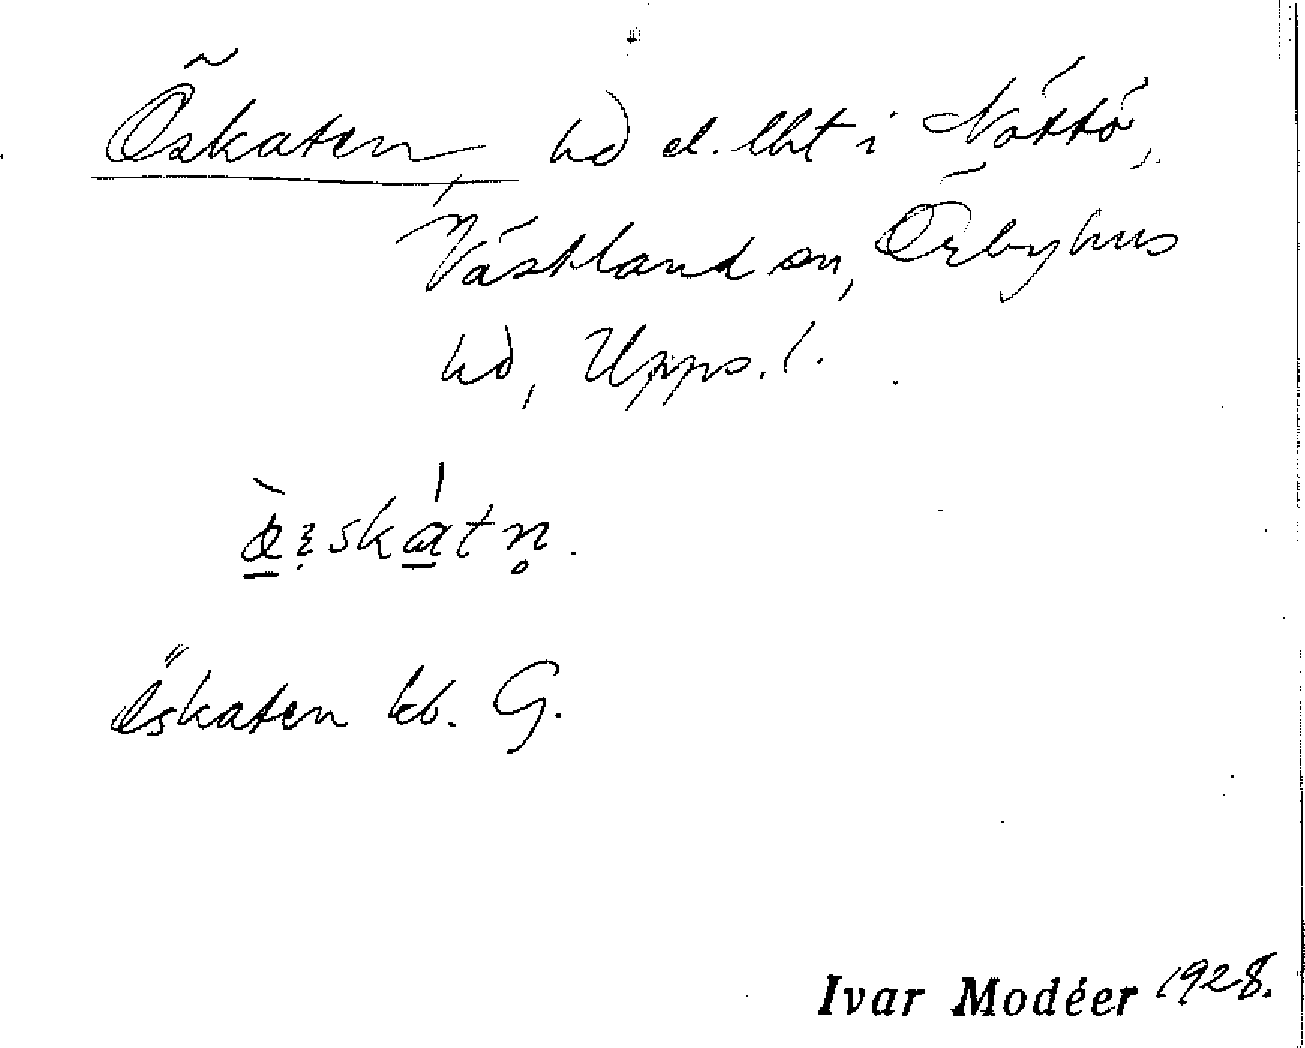 Öskaten, hd el. lht i Nöttö,
Västland sn, Örbyhus
hd, Upps. l.
öskaten kb. G.
Ivar Modéer 1928.